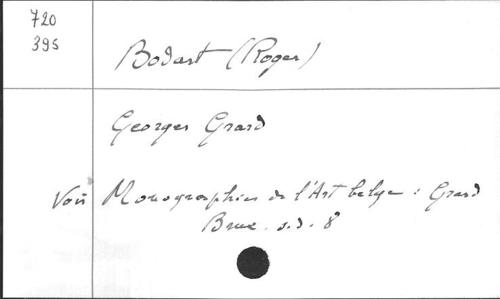 720
395
Bodart (Roger)
Georges Grard
Voir Monographies de l'Art belge : Grard
Brux. s.d. 8°